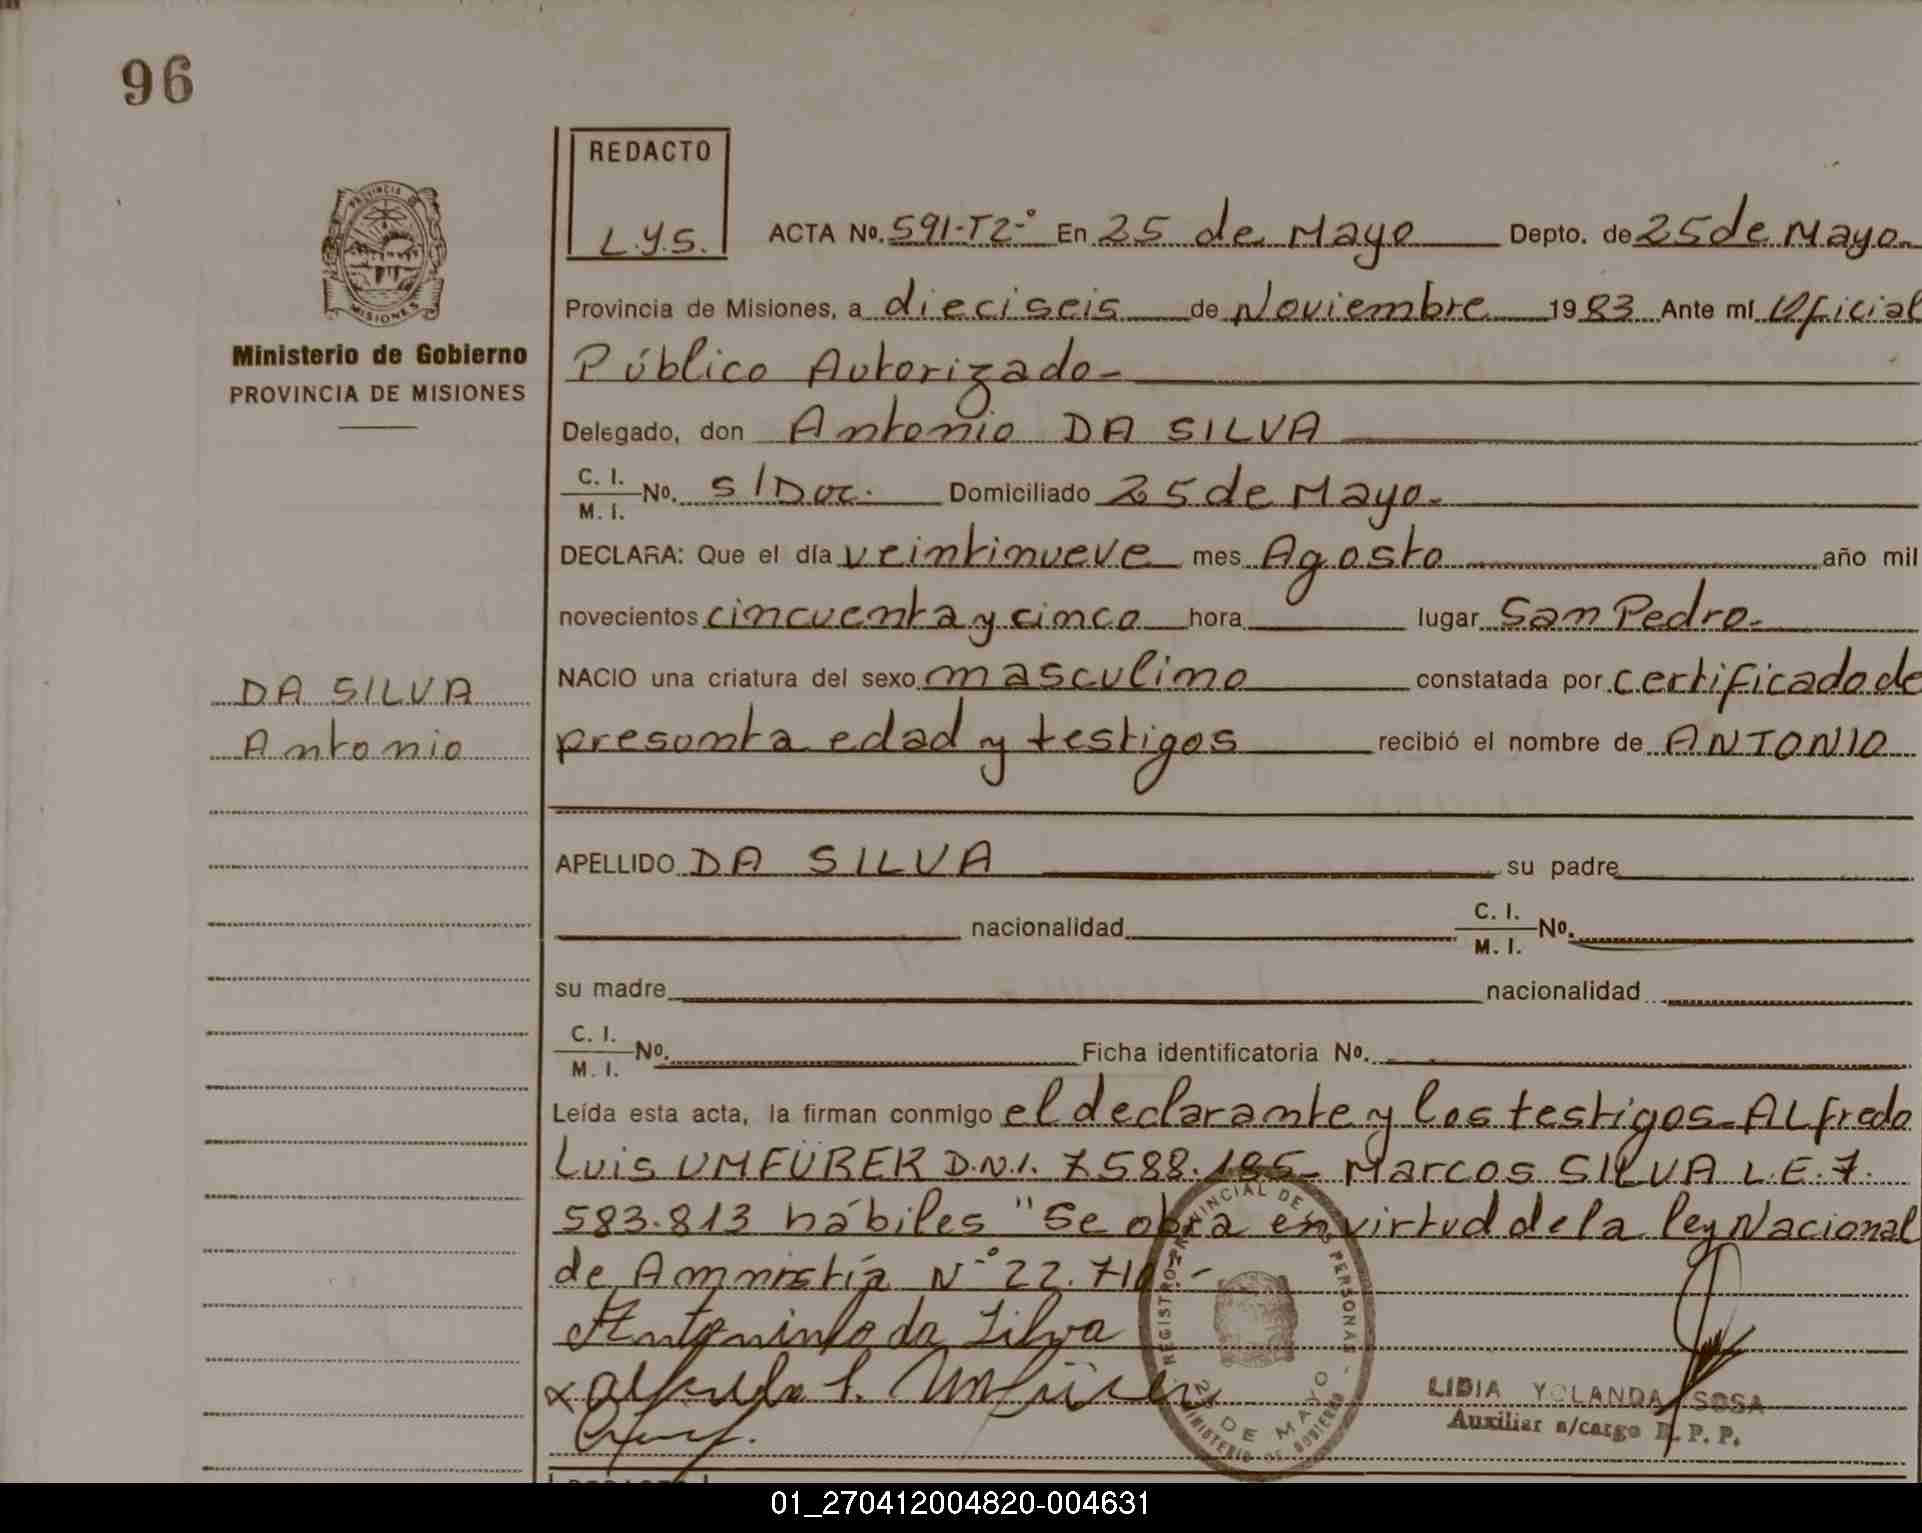 96
REDACTO
L.Y.S.
ACTA No. 591-T2-° En 25 de Mayo Depto. de 25 de Mayo-
Provincia de Misiones, a dieciseis de Noviembre 1983 Ante mí Oficial
Público Autorizado-
Delegado, don Antonio DA SILVA
C. I.
M. I. No. S/Doc. Domiciliado 25 de Mayo-
DECLARA: Que el día veintinueve mes Agosto año mil
novecientos cincuenta y cinco hora lugar San Pedro-
NACIO una criatura del sexo masculino constatada por certificado de
presunta edad y testigos recibió el nombre de ANTONIO
APELLIDO DA SILVA su padre
nacionalidad C. I.
M. I. No.
su madre nacionalidad
C. I.
M. I. No. Ficha identificatoria No.
Leída esta acta, la firman conmigo el declarante y los testigos- ALfredo
Luis UMFÜRER D.N.I. 7.588.185- Marcos SILVA L.E. 7.
583.813 hábiles "Se obra en virtud de la ley Nacional
de Ammistía N° 22.710.-
Antoninho da Silva
x Alfredo L. Umfürer
PROVINCIA DE
MISIONES
Ministerio de Gobierno
PROVINCIA DE MISIONES
DA SILVA
Antonio
REGISTRO PROVINCIAL DE LAS PERSONAS -
25 DE MAYO
MINISTERIO DE GOBIERNO
LIDIA YOLANDA SOSA
Auxiliar a/cargo R. P. P.
REDACTO
01_270412004820-004631